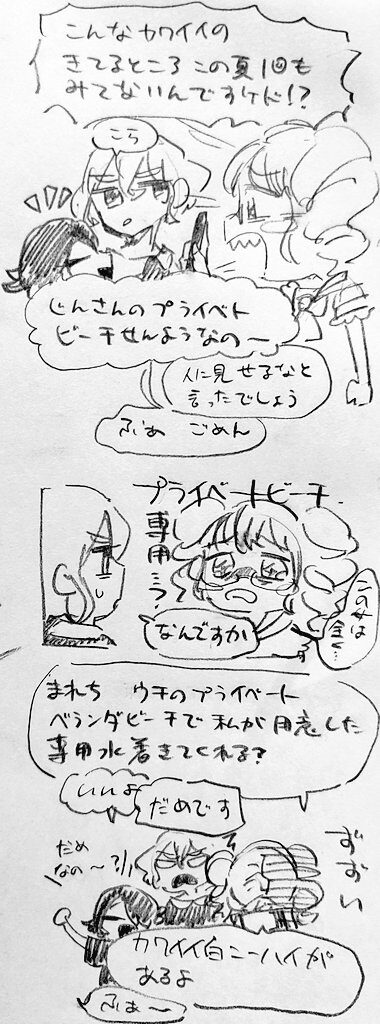 こんなカワイイの
きてるところこの夏1回も
みてないんですケド!?
こら
じんさんのプライベト
ビーチせんようなの〜
人に見せるなと
言ったでしょう
ふぁ ごめん
プライベートビーチ
専用…?
なんですか
この女は
まれち ウチのプライベート
ベランダビーチで私が用意した
専用水着きてくれる?
いいよ
だめです
ずずい
だめ
なの〜?!
カワイイ白ニーハイが
あるよ
ふぁ〜